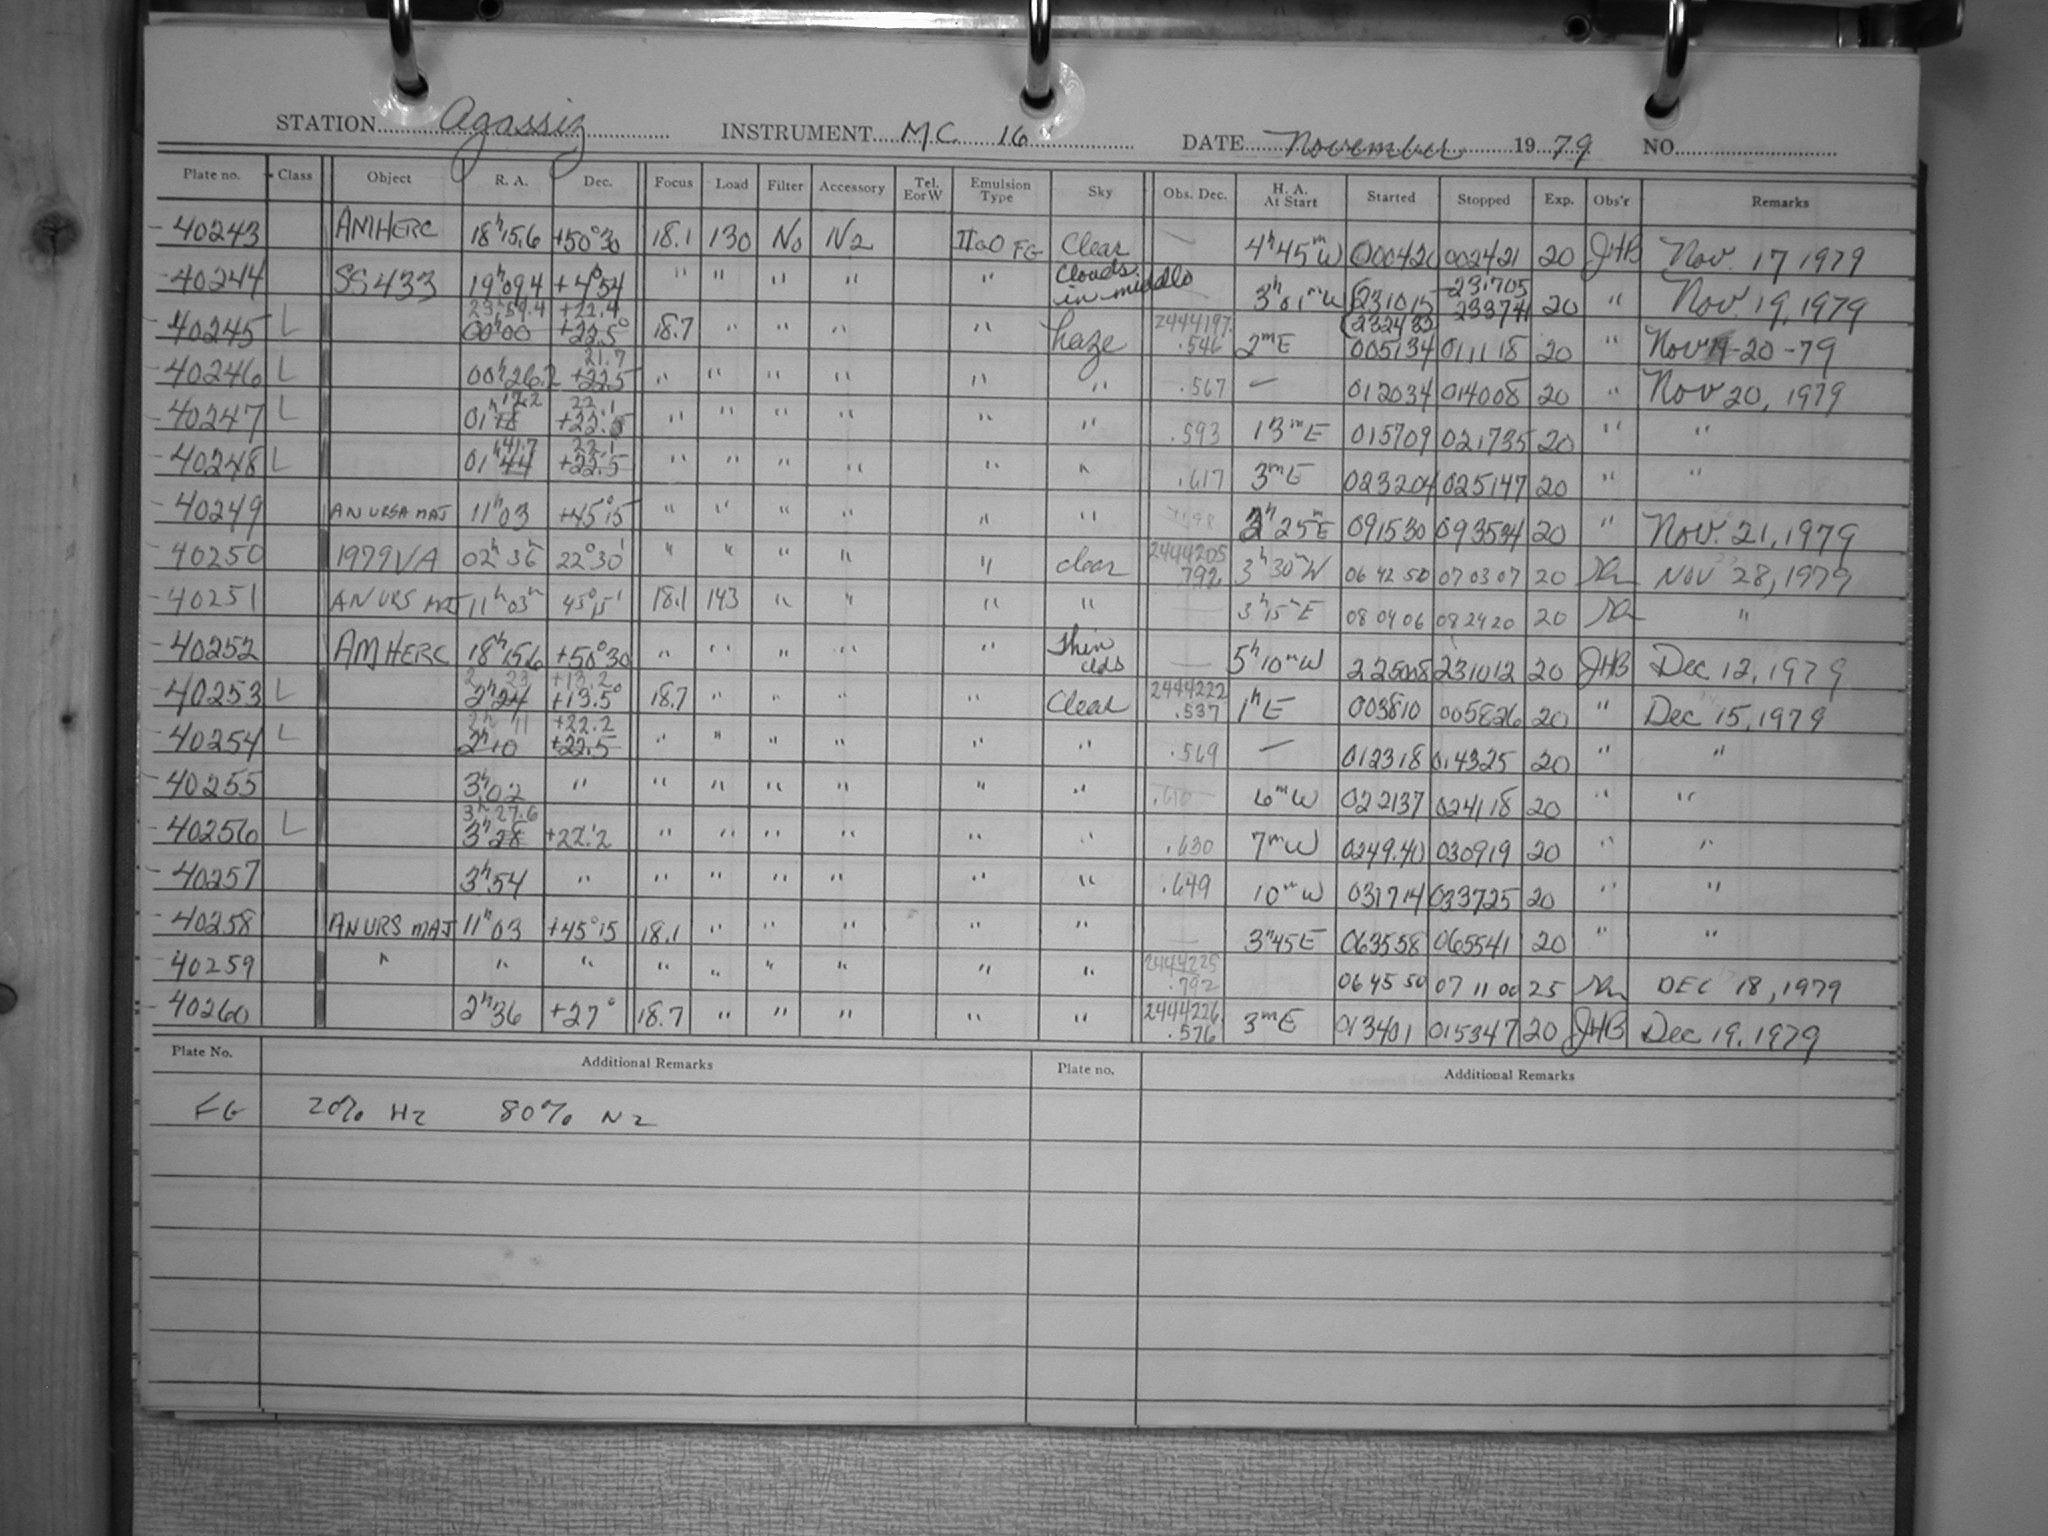 STATION Agassiz INSTRUMENT M.C. 16 DATE November 19 79 NO.
Plate no. Class Object R. A. Dec. Focus Load Filter Accessory Tel. E or W Emulsion Type Sky Obs. Dec. H. A. At Start Started Stopped Exp. Obs'r Remarks
40243 AM HERC 18h15.6 +50°30 18.1 130 No N2 IIaO FG Clear — 4h45mW 000420 002421 20 JHB Nov. 17 1979
40244 SS433 19h09.4 +4°54 " " " " " Clouds in middle — 3h01mW 231015 231705 232433 233741 20 " Nov. 19, 1979
40245 L 23h59.4 +22.4 00h00 +22.5° 18.7 " " " " haze 2444197 .546 2mE 005134 011118 20 " Nov 19-20-79
40246 L 00h26.2 21.7 +22.5 " " " " " " .567 — 012034 014008 20 " Nov 20, 1979
40247 L 01h18 17.2 22.1 +22.5 " " " " " " .593 13mE 015709 021735 20 " "
40248 L 01h44 41.7 22.1 +22.5 " " " " " " .617 3mE 023204 025147 20 " "
40249 AN URSA MAJ 11h03 +45°15 " " " " " " 3h25mE 091530 093534 20 " Nov. 21, 1979
40250 1979VA 02h36m 22°30' " " " " " clear 2444205 .792 3h30mW 06 42 50 07 03 07 20 NOV 28, 1979
40251 AN URS MAJ 11h03m 45°15' 18.1 143 " " " " — 3h15mE 08 04 06 08 24 20 20 "
40252 AM HERC 18h15.6 +50°30 " " " " " Thin clds — 5h10mW 225008 231012 20 JHB Dec 12, 1979
40253 L 2h 23 +13.2 2h24 +13.5° 18.7 " " " " Clear 2444222 .537 1hE 003810 005826 20 " Dec 15, 1979
40254 L 2h 11 +22.2 2h10 +22.5 " " " " " " .569 — 012318 014325 20 " "
40255 3h02 " " " " " " " .610 6mW 022137 024118 20 " "
40256 L 3h27.6 3h28 +22.2 " " " " " " .630 7mW 024940 030919 20 " "
40257 3h54 " " " " " " " .649 10mW 031714 033725 20 " "
40258 AN URS MAJ 11h03 +45°15 18.1 " " " " " — 3h45E 063558 065541 20 " "
40259 " " " " " " " " " 2444225 .792 06 45 50 07 11 00 25 DEC 18, 1979
40260 2h36 +27° 18.7 " " " " " 2444226 .576 3mE 013401 015347 20 JHB Dec 19, 1979
Plate No. Additional Remarks Plate no. Additional Remarks
FG 20% H2 80% N2